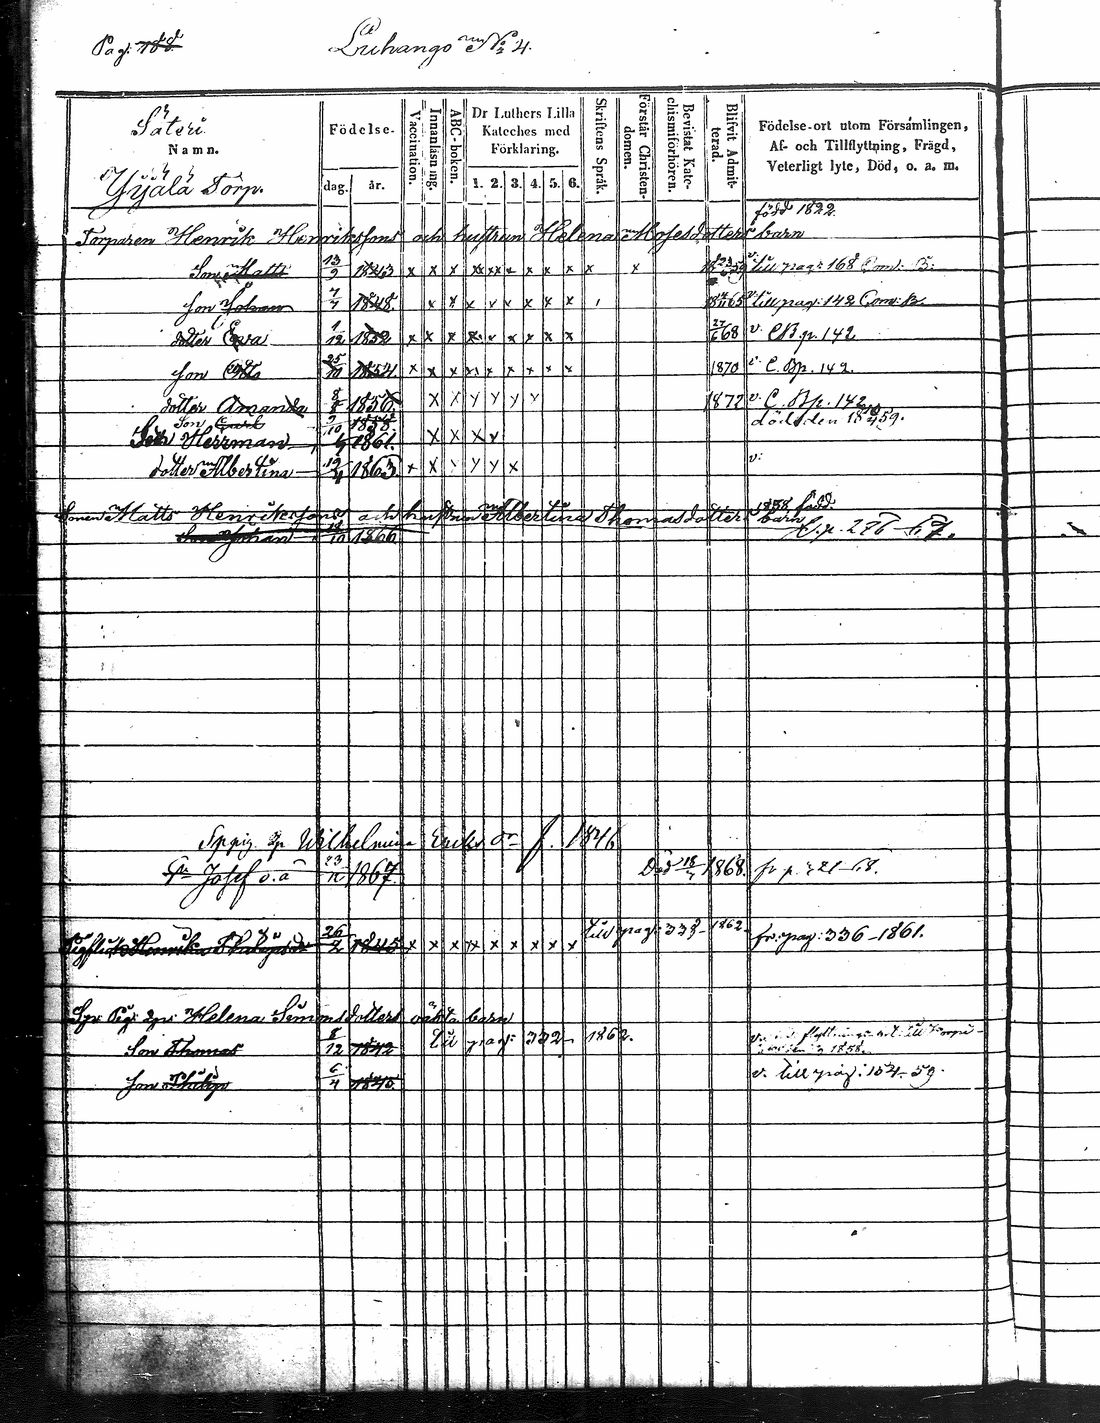 Pag: 188.
Luhango N:o 4.
Säteri
Namn.
Yijälä Torp.
Födelse-
dag.
år.
Vaccination.
Innanläsning.
ABC-boken.
Dr Luthers Lilla
Kateches med
Förklaring.
1. 2. 3. 4. 5. 6.
Skriftens Språk.
Förstår Christen-
domen.
Bevistat Kate-
chismiförhören.
Blifvit Admit-
terad.
Födelse-ort utom Församlingen,
Af- och Tillflyttning, Frägd,
Veterligt lyte, Död, o. a. m.
född 1822.
Torparen Henrik Henrikssons och hustrun Helena Mosesdotters barn
Son Matts 13/9 1843 x x x x x x x x x x x till pag: 168 Com: B:
son Johan 7/4 1848. x x x v x x x till pag: 142 Com: B
dotter Eva 1/12 1852 x x x x v x x x x 27/6 68 v. CB.p. 142
son Otto 25/10 1854. x x x x x x x x x 1870 v. C. Bp. 142.
dotter Amanda 1856. x x y y y y 1872 v. C. Bp. 142
son Carl 9/10 1858. död den 59.
Son Herrman 1861. x x x v
dotter Albertina 1863. x x y y y x v:
Sonen Matts Henriksson och hustrun Albertina Thomasdotters barn
1838 född.
Son Johan 1866. C.p. 276-67.
Wilhelmina Eriks dr f. 1846
Josef o.ä 23/12 1867. Död 1868. fr p. 221-68.
till pag: 338- 1862-
Henrika 26/2 1845 x x x x x x x x x fr. pag: 336-1861.
Helena Simonsdotters oäkta barn
till pag: 332- 1862.
Son Thomas 8/12 1842
1858.
son Philip 6/4 1845 v. till pag: 154-59.